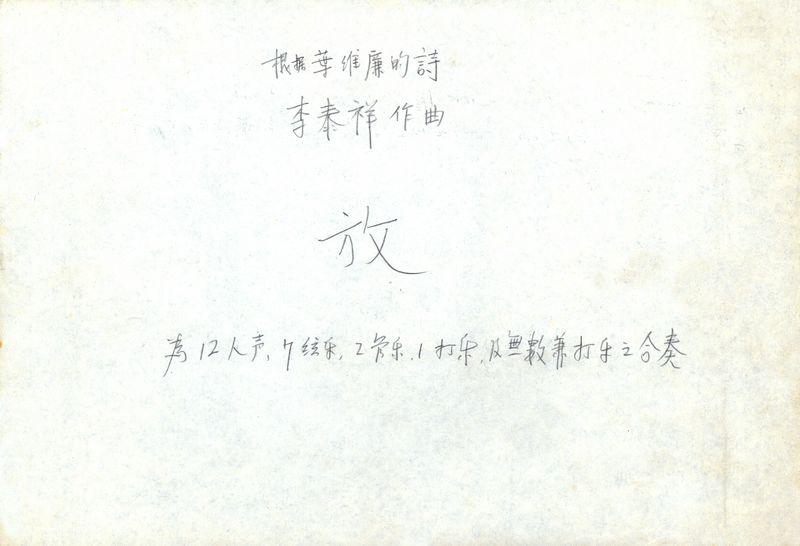 根据葉维廉的詩
李泰祥作曲
放
為12人声、7絃乐、2管乐、1打乐、及無數兼打乐之合奏